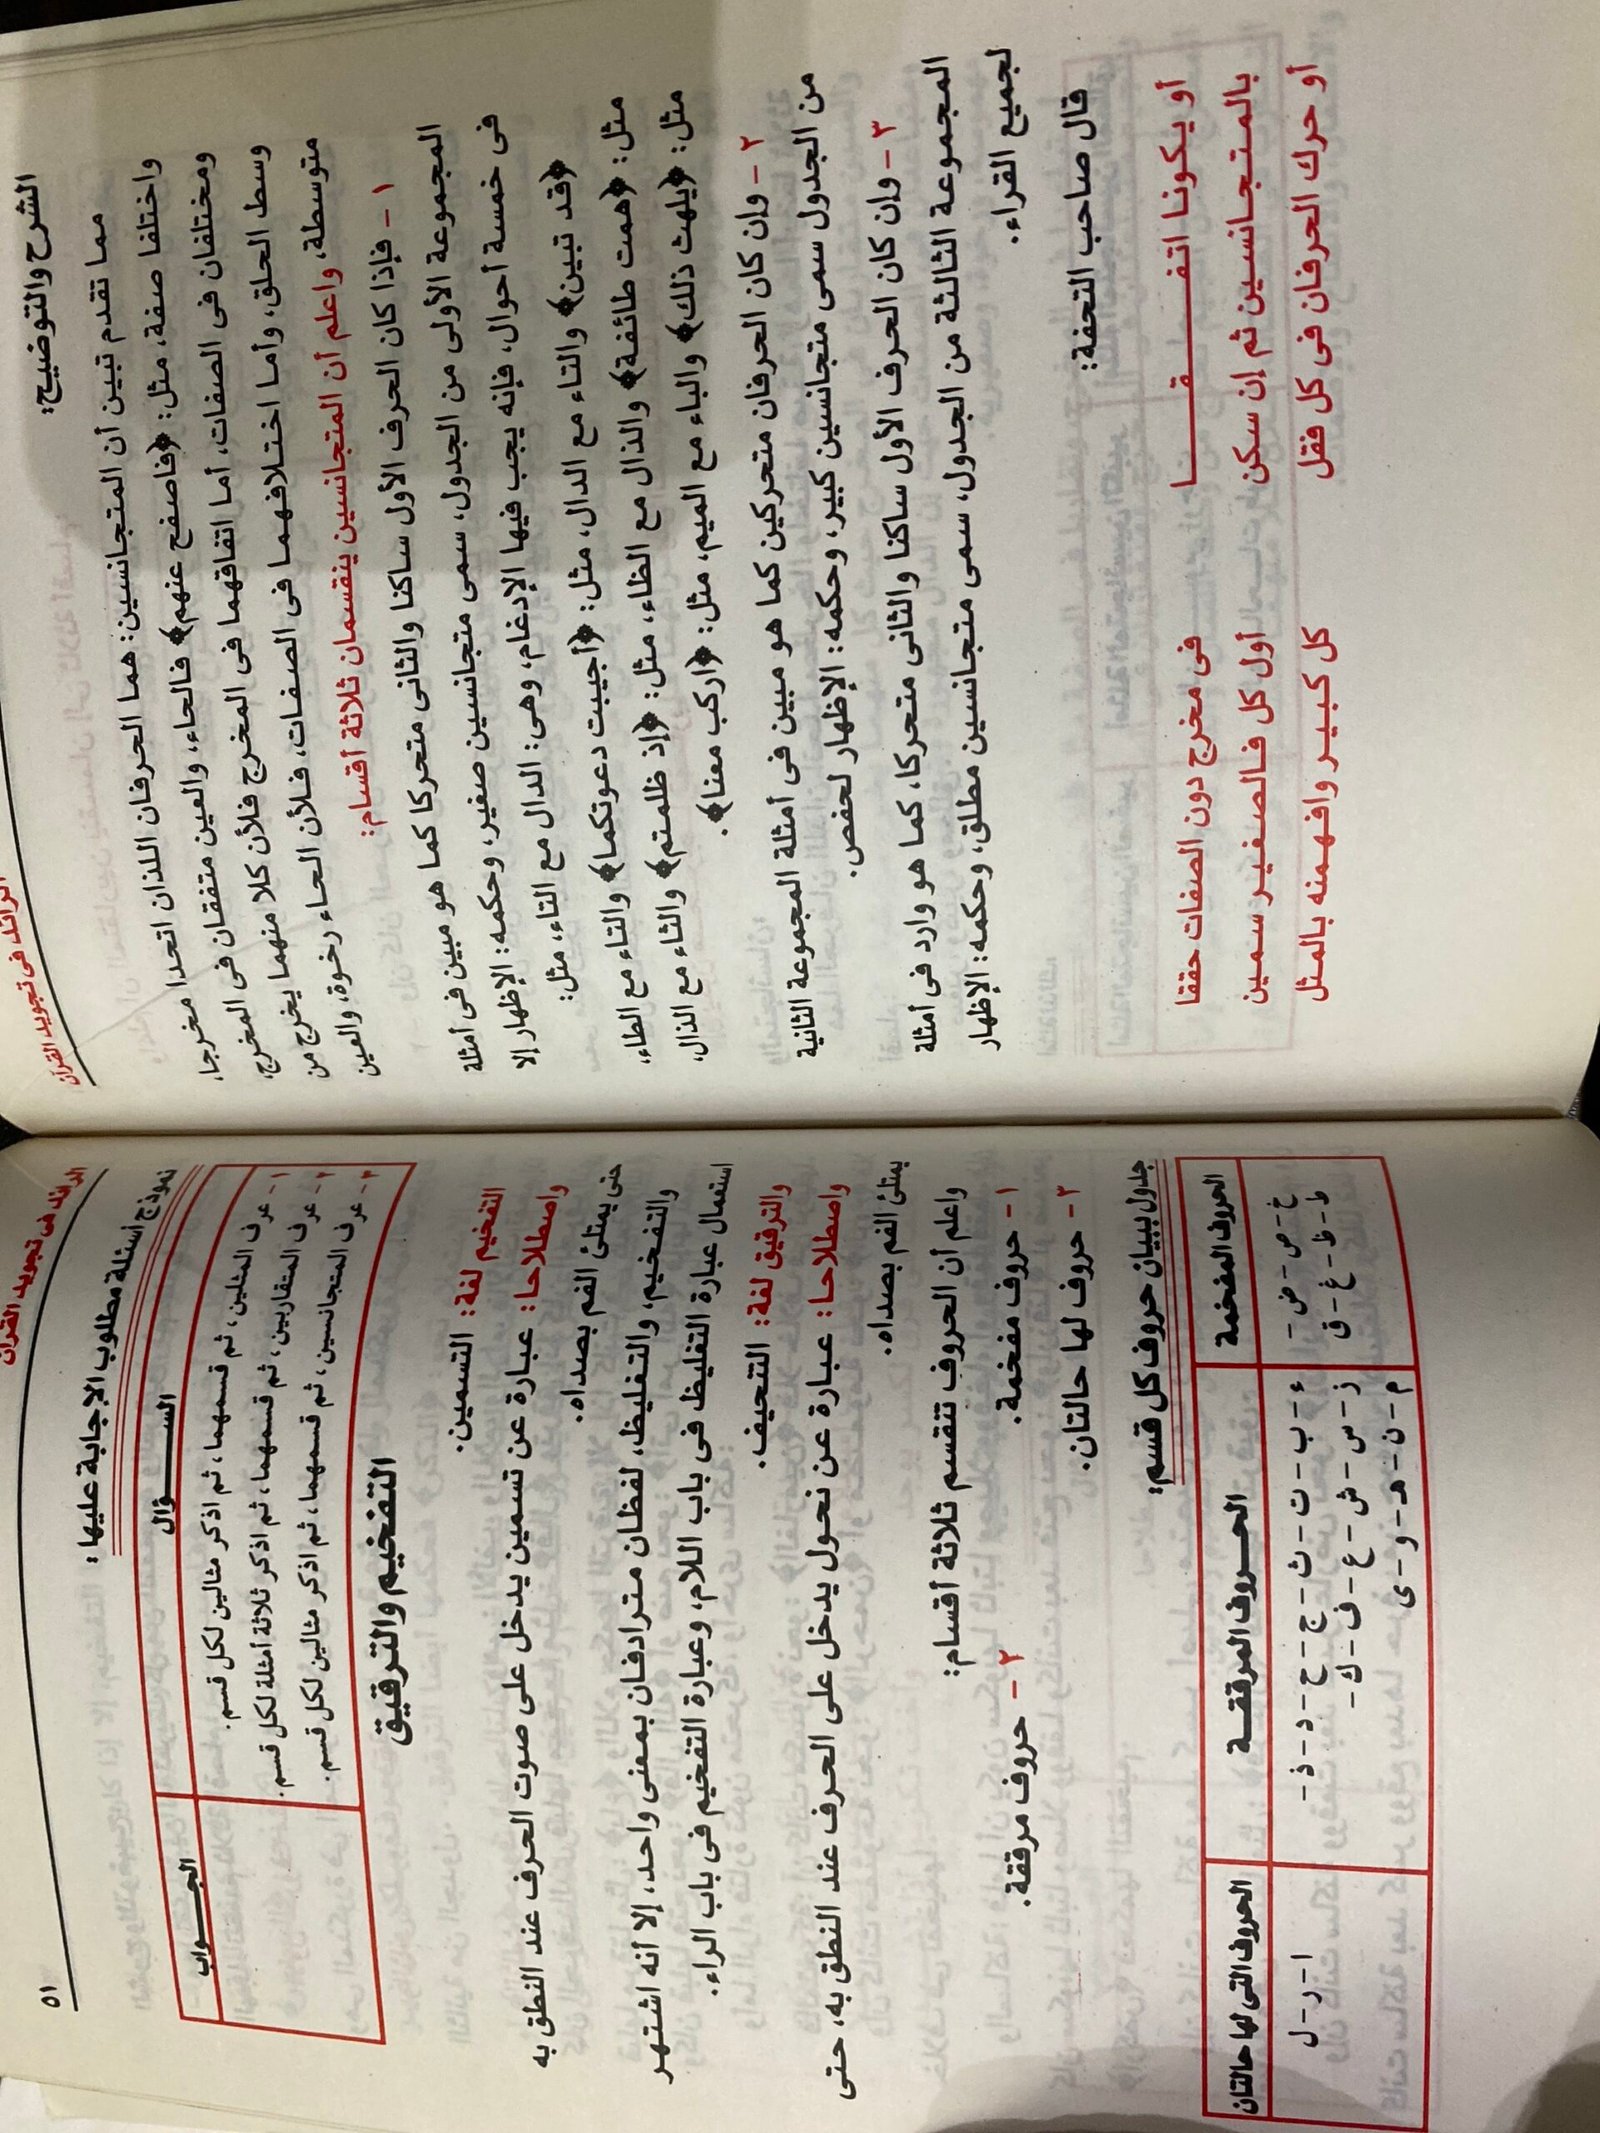 الرائد فى تجويد القرآن
الشرح والتوضيح:
مما تقدم تبين أن المتجانسين: هما الحرفان اللذان اتحدا مخرجا،
واختلفا صفة، مثل: ﴿فاصفح عنهم﴾ فالحاء، والعين متفقتان فى المخرج،
ومختلفان فى الصفات، أما اتفاقهما فى المخرج فلأن كلا منهما يخرج من
وسط الحلق، وأما اختلافهما فى الصفات، فلأن الحاء رخوة، والعين
متوسطة، واعلم أن المتجانسين ينقسمان ثلاثة أقسام:
١ - فإذا كان الحرف الأول ساكنا والثانى متحركا كما هو مبين فى أمثلة
المجموعة الأولى من الجدول، سمى متجانسين صغير، وحكمه: الإظهار إلا
فى خمسة أحوال، فإنه يجب فيها الإدغام، وهى: الدال مع التاء، مثل:
﴿قد تبين﴾ والتاء مع الدال، مثل: ﴿أجيبت دعوتكما﴾ والتاء مع الطاء،
مثل: ﴿همت طائفة﴾ والذال مع الظاء، مثل: ﴿إذ ظلمتم﴾ والثاء مع الذال،
مثل: ﴿يلهث ذلك﴾ والباء مع الميم، مثل: ﴿اركب معنا﴾.
٢ - وإن كان الحرفان متحركين كما هو مبين فى أمثلة المجموعة الثانية
من الجدول سمى متجانسين كبير، وحكمه: الإظهار لحفص.
٣ - وإن كان الحرف الأول ساكنا والثانى متحركا، كما هو وارد فى أمثلة
المجموعة الثالثة من الجدول، سمى متجانسين مطلق، وحكمه: الإظهار
لجميع القراء.
قال صاحب التحفة:
أو يكونا اتفـــقـــا فى مخرج دون الصفات حققا
بالمتجانسين ثم إن سكن أول كل فالصغير سمين
أو حرك الحرفان فى كل فقل كل كبير وافهمنه بالمثل
الرائد فى تجويد القرآن
٥١
نموذج أسئلة مطلوب الإجابة عليها:
الســـؤال الجـــواب
١ - عرف المثلين، ثم قسمهما، ثم اذكر مثالين لكل قسم.
٢ - عرف المتقاربين، ثم قسمهما، ثم اذكر ثلاثة أمثلة لكل قسم.
٣ - عرف المتجانسين، ثم قسمهما، ثم اذكر مثالين لكل قسم.
التفخيم والترقيق
التفخيم لغة: التسمين.
واصطلاحا: عبارة عن تسمين يدخل على صوت الحرف عند النطق به
حتى يمتلئ الفم بصداه.
والتفخيم، والتغليظ، لفظان مترادفان بمعنى واحد، إلا أنه اشتهر
استعمال عبارة التغليظ فى باب اللام، وعبارة التفخيم فى باب الراء.
والترقيق لغة: التنحيف.
واصطلاحا: عبارة عن نحول يدخل على الحرف عند النطق به، حتى
يمتلئ الفم بصداه.
واعلم أن الحروف تنقسم ثلاثة أقسام:
١ - حروف مفخمة. ٢ - حروف مرققة.
٣ - حروف لها حالتان.
جدول ببيان حروف كل قسم:
الحروف المفخمة الحــروف المرققــة الحروف التى لها حالتان
خ - ص - ض - ء - ب - ت - ث - ج - ح - د - ذ - ا - ر - ل
ط - ظ - غ - ق ز - س - ش - ع - ف - ك -
م - ن - هـ - و - ى